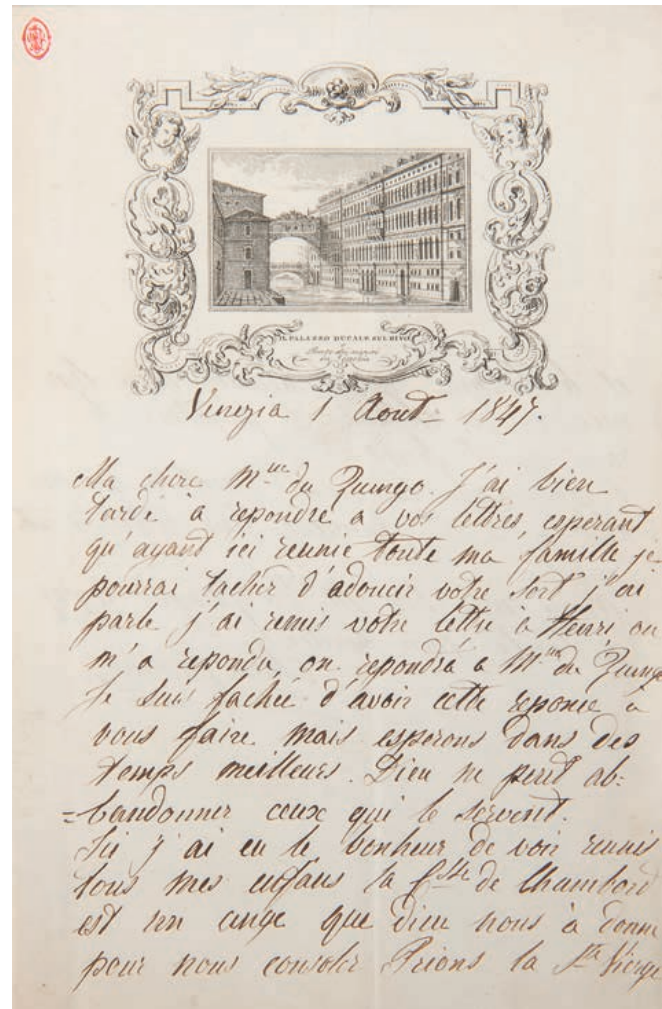 IL PALAZZO DUCALE SUL RIVO
Venezia 1 Aout 1847.
Ma chere M.me du Quengo. J'ai bien
tardé a repondre a vos lettres, esperant
qu'ayant ici reunie toute ma famille je
pourrai tacher d'adoucir votre sort j'ai
parlé j'ai remis votre lettre à Henri on
m'a repondu, on repondra a M.me du Quengo
Je suis fachée d'avoir cette reponse à
vous faire mais esperons dans des
temps meilleurs. Dieu ne peut ab=
=bandonner ceux qui le servent.
Ici j'ai eu le bonheur de voir reunis
tous mes enfans la C.sse de Chambord
est un ange que dieu nous à donné
pour nous consoler Prions la S.te Vierge